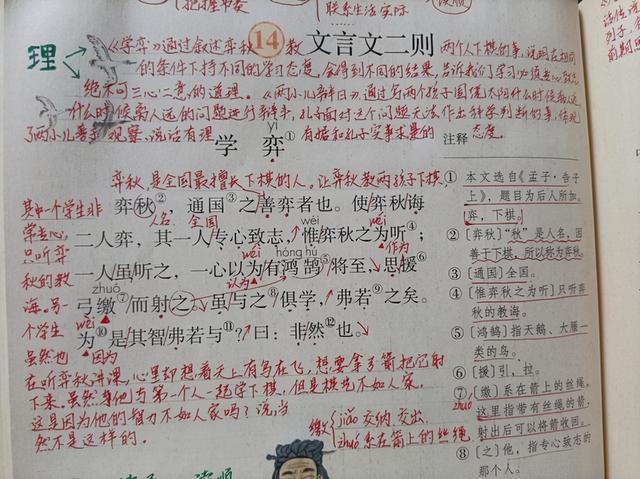 把握节奏
联系生活实际
读顺
理
14 文言文二则
《学弈》通过叙述弈秋教两个人下棋的事,说明在相同
的条件下持不同的学习态度,会得到不同的结果,告诉我们学习必须专心致志,
绝不可三心二意的道理。《两小儿辩日》通过写两个孩子围绕太阳什么时候离人近
什么时候离人远的问题进行辩斗,孔子面对这个问题无法作出科学判断的事,体现
了两小儿善于观察,说话有理有据和孔子实事求是的态度。
yì
学弈①
注释
弈秋,是全国最擅长下棋的人。让弈秋教两孩子下棋,
弈秋②,通国③之善弈者也。使弈秋诲
人名 全国
wéi wéi
二人弈,其一人专心致志,惟弈秋之为听④;
wéi hóng hú 作为
一人虽听之,一心以为有鸿鹄⑤将至,思援⑥
zhuó 认为
弓缴⑦而射之⑧,虽与之俱学,弗若⑨之矣。
wèi
为⑩是其智弗若与⑪?曰:非然⑫也。
因为
其中一个学生非
常专心,
只听弈
秋的教
诲。另
个学生
虽然也
在听弈秋讲课,心里却想着天上有鸟在飞,想要拿弓箭把它射
下来。虽然与他与第一个人一起学下棋,但是棋艺不如人家。
这是因为他的智力不如人家吗?说:当
然不是这样的。
缴
jiǎo 交纳、交出
zhuó 系在箭上的丝绳
① 本文选自《孟子·告子
上》,题目为后人所加。
弈,下棋。
② 〔弈秋〕“秋”是人名,因
善于下棋,所以称为弈秋。
③ 〔通国〕全国。
④ 〔惟弈秋之为听〕只听弈
秋的教诲。
⑤ 〔鸿鹄〕指天鹅、大雁一
类的鸟。
⑥ 〔援〕引,拉。
zhuó
⑦ 〔缴〕系在箭上的丝绳,
这里指带有丝绳的箭,
射出后可以将箭收回。
⑧ 〔之〕他,指专心致志的
那个人。